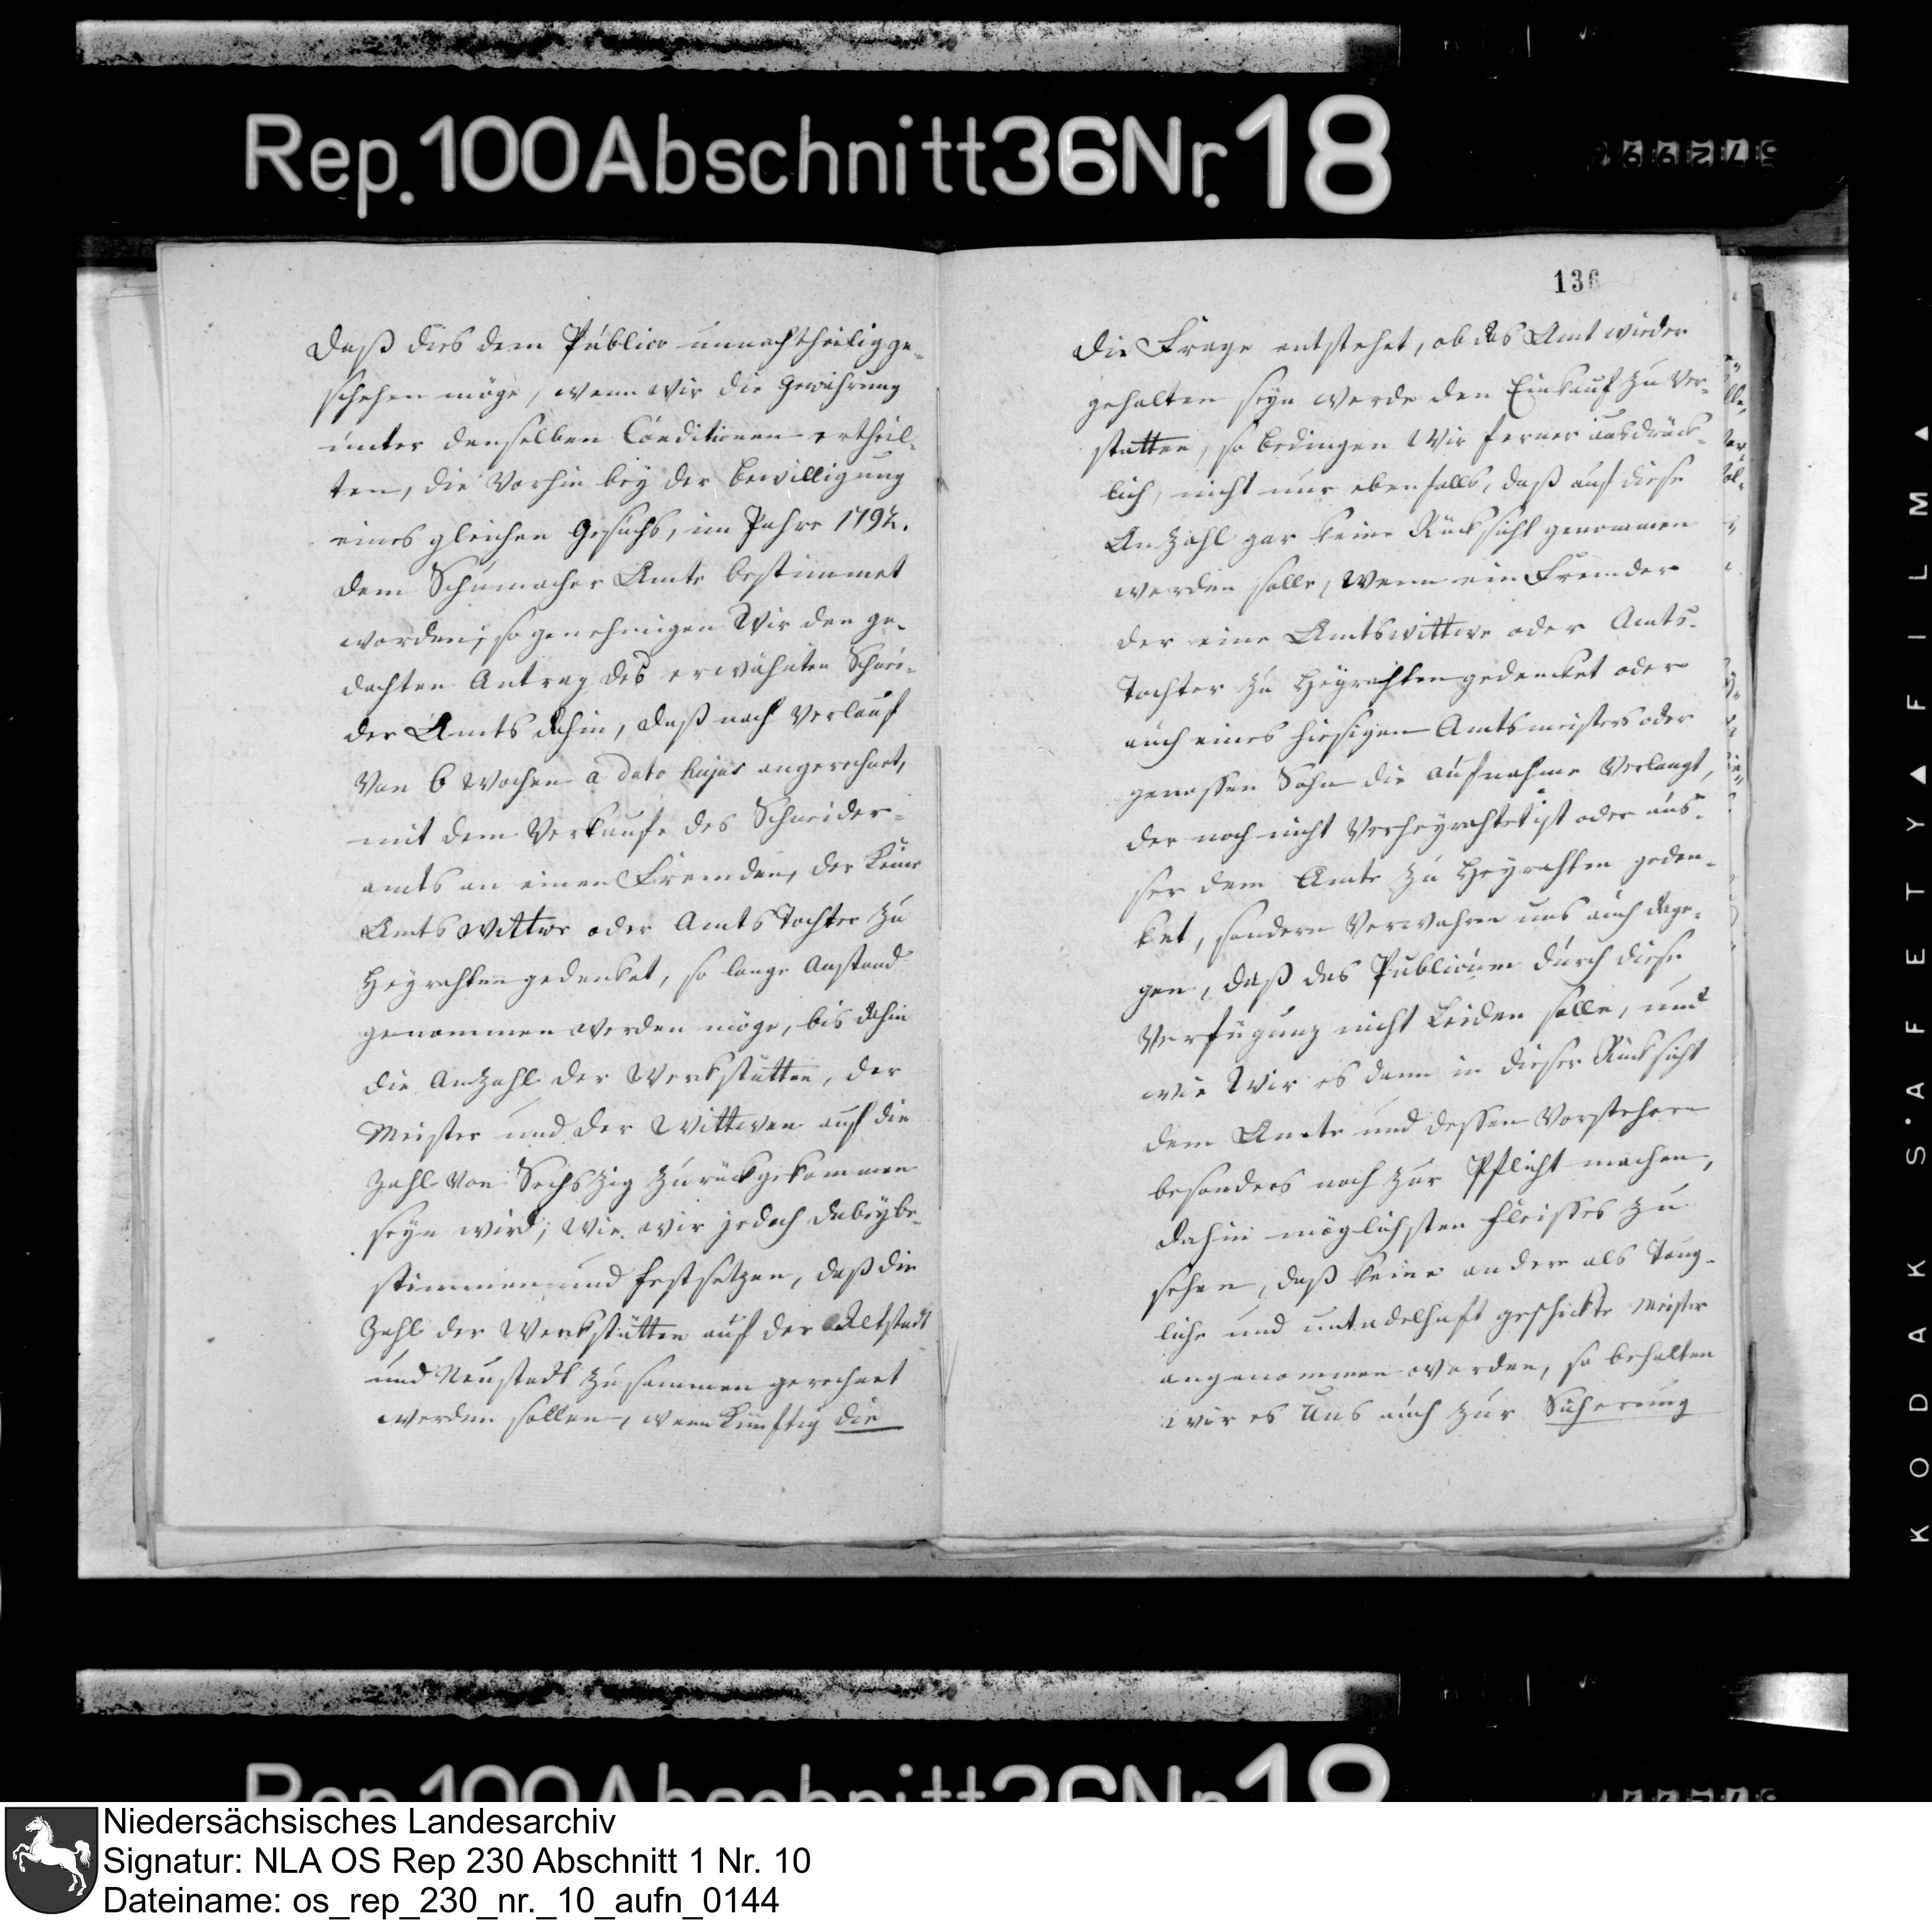 Rep. 100 Abschnitt 36 Nr. 18
daß dies dem Publico unnachtheilig ge-
schehen möge, wenn wir die Gewährung
unter denselben Conditionen ertheil-
ten, die vorhin bey der Bewilligung
eines gleichen Gesuchs, im Jahre 1792.
dem Schumacher Amte bestimmet
worden; so genehmigen Wir den ge-
dachten Antrag des erwähnten Schnei-
der Amts dahin, daß nach Verlauf
von 6 Wochen a dato hujus angerechnet,
mit dem Verkaufe des Schneider-
amts an einen Fremden, der keine
Amts Wittwe oder Amts Tochter zu
Heyrathen gedenket, so lange Anstand
genommen werden möge, bis dahin
die Anzahl der Werkstätten, der
Meister und der Wittwen auf die
Zahl von Sechszig zurückgekommen
seyn wird; wie wir jedoch dabey be-
stimmen und festsetzen, daß die
Zahl der Werkstätten auf der Altstadt
und Neustadt zusammen gerechnet
werden sollen, wenn künftig die
136
die Frage entstehet, ob das Amt wieder
gehalten seyn werde den Einkauf zu ver-
statten, so bedingen Wir ferner ausdrück-
lich, nicht nur ebenfalls, daß auf diese
Anzahl gar keine Rücksicht genommen
werden solle, wenn ein Fremder
der eine Amtswittwe oder Amts-
Tochter zu Heyrathen gedencket oder
auch eines hiesigen Amtsmeisters oder
genossen Sohn die Aufnahme verlangt,
der noch nicht Verheyrathet ist oder aus-
ser dem Amte zu Heyrathen geden-
ket, sondern Verwahren uns auch dage-
gen, daß das Publicum durch diese
Verfügung nicht Leiden solle, und
wie Wir es dann in dieser Rücksicht
dem Amte und dessen Vorstehern
besonders noch zur Pflicht machen,
dahin möglichsten Fleisses zu
sehen, daß keine andere als Taug-
liche und untadelhaft geschickte Meister
angenommen werden, so behalten
wir es Uns auch zur Sicherung
KODAK SAFETY FILM
Niedersächsisches Landesarchiv
Signatur: NLA OS Rep 230 Abschnitt 1 Nr. 10
Dateiname: os_rep_230_nr._10_aufn_0144